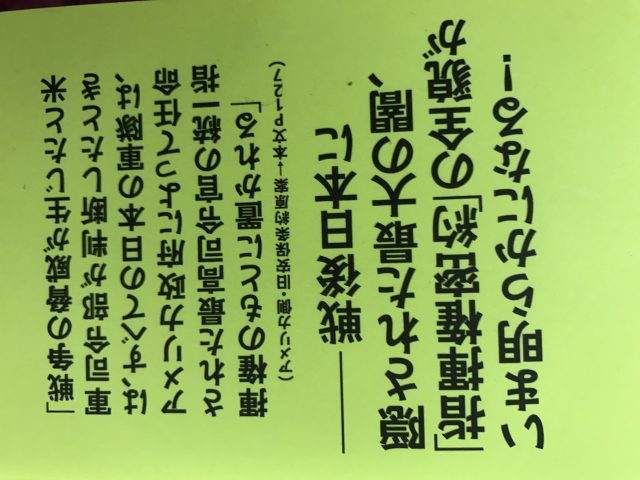 「戦争の脅威が生じたと米
軍司令部が判断したとき
は、すべての日本の軍隊は、
アメリカ政府によって任命
された最高司令官の統一指
揮権のもとに置かれる」
（アメリカ側・旧安保条約原案→本文P127）
――戦後日本に
隠された最大の闇、
「指揮権密約」の全貌が
いま明らかになる！